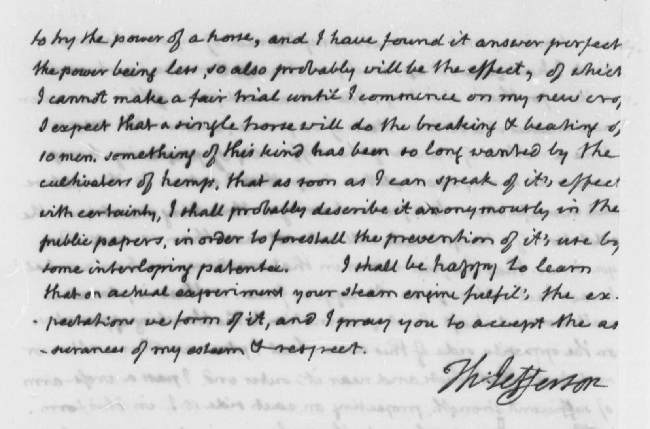 to try the power of a horse, and I have found it answer perfect
the power being less, so also probably will be the effect, of which
I cannot make a fair trial until I commence on my new cro,
I expect that a single horse will do the breaking & beating of
10 men. something of this kind has been so long wanted by the
cultivaters of hemp, that as soon as I can speak of it's effect
with certainty, I shall probably describe it anonymously in the
public papers, in order to forestall the prevention of it's use by
some interloping patentee. I shall be happy to learn
that on actual experiment your steam engine fulfil's the ex-
-pectations we form of it, and I pray you to accept the as
-surances of my esteem & respect.
Th: Jefferson